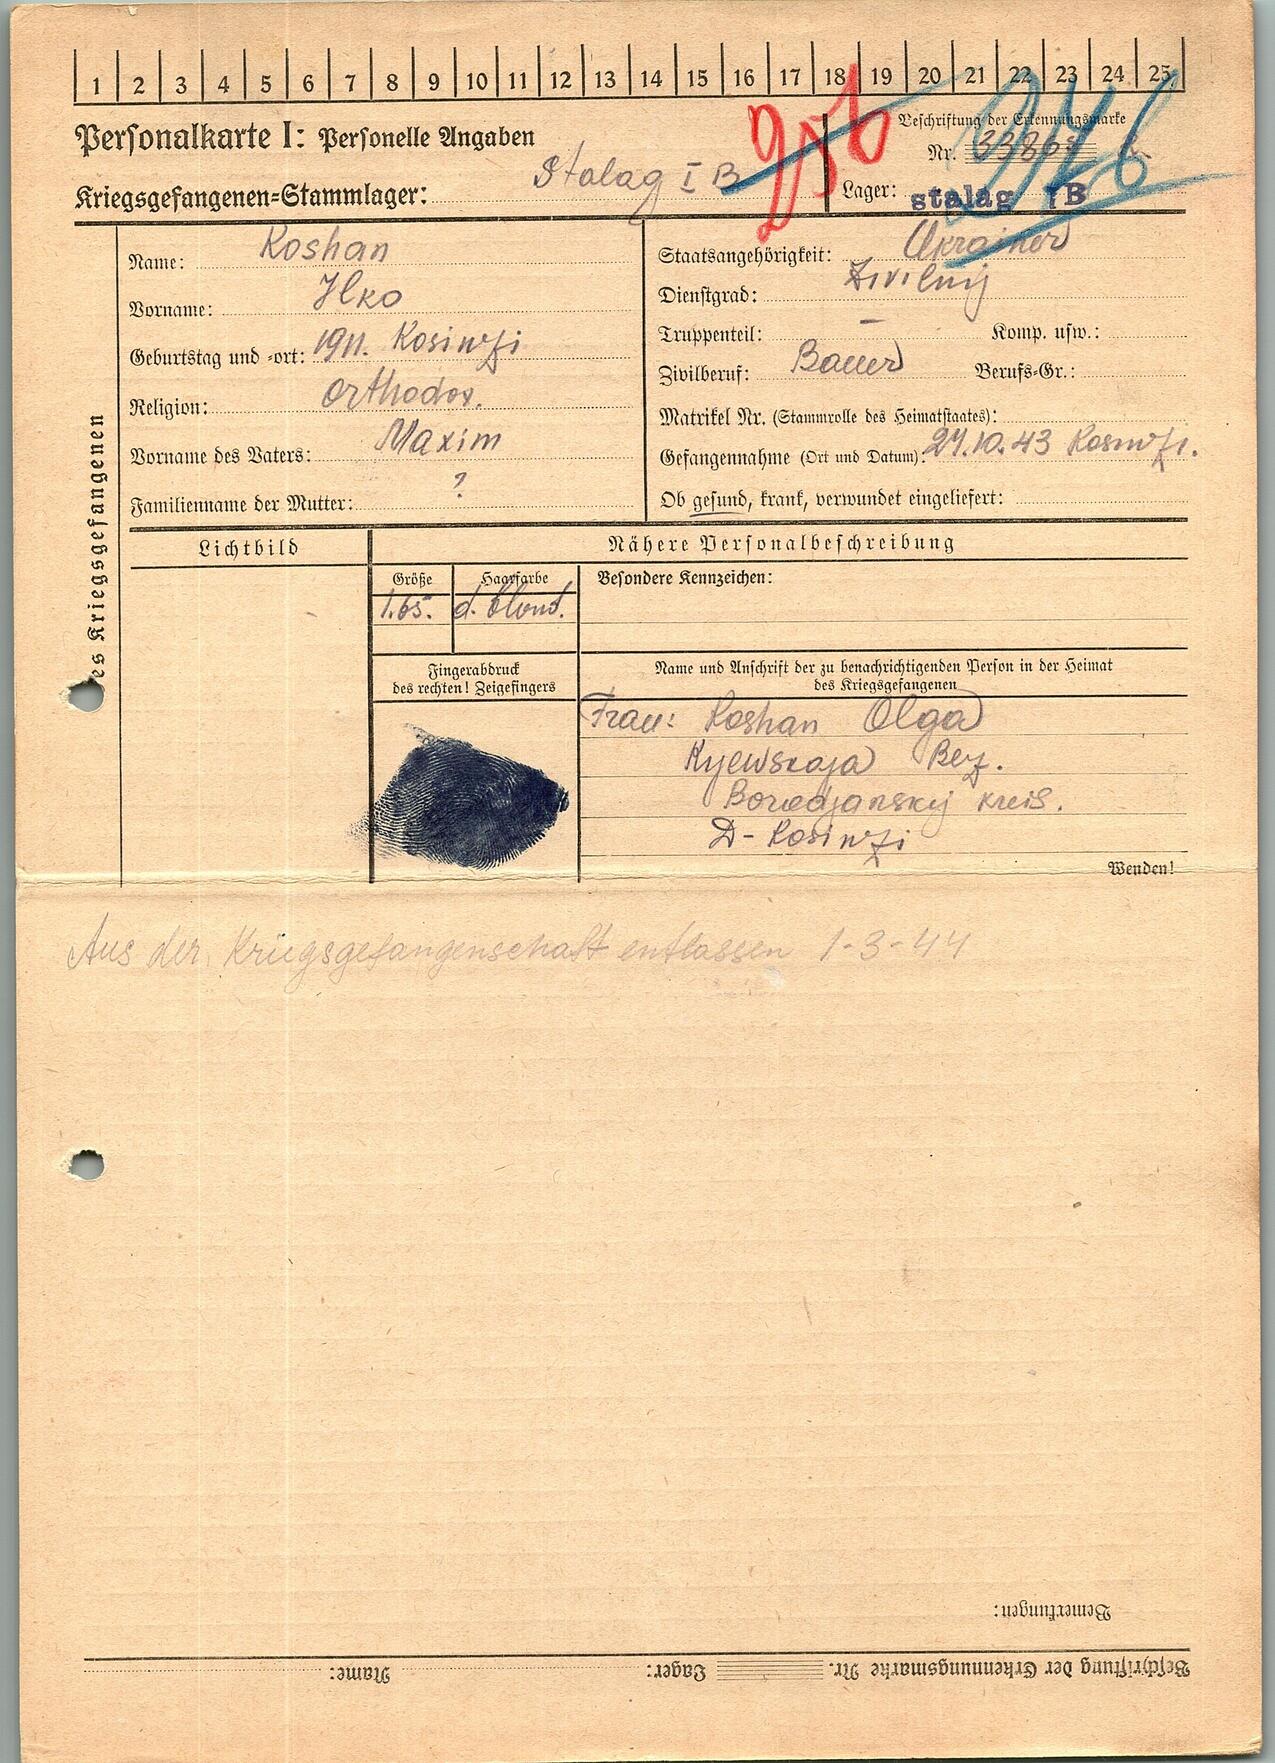 1 2 3 4 5 6 7 8 9 10 11 12 13 14 15 16 17 18 19 20 21 22 23 24 25
Personalkarte I: Personelle Angaben
Beschriftung der Erkennungsmarke
Nr.
Kriegsgefangenen=Stammlager: Stalag I B
Lager: stalag I B
des Kriegsgefangenen
Name: Koshan
Vorname: Ilko
Geburtstag und =ort: 1911. Kosinzi
Religion: Orthodox.
Vorname des Vaters: Maxim
Familienname der Mutter: ?
Staatsangehörigkeit: Ukrainer
Dienstgrad: Zivilnij
Truppenteil: — Komp. usw.:
Zivilberuf: Bauer Berufs=Gr.:
Matrikel Nr. (Stammrolle des Heimatstaates):
Gefangennahme (Ort und Datum): 27.10.43 Kosinzi.
Ob gesund, krank, verwundet eingeliefert:
Lichtbild
Nähere Personalbeschreibung
Größe Haarfarbe Besondere Kennzeichen:
1.65. d. blond.
Fingerabdruck
des rechten! Zeigefingers
Name und Anschrift der zu benachrichtigenden Person in der Heimat
des Kriegsgefangenen
Frau: Koshan Olga
Kyewskaja Bez.
Borodjanskij kreis.
D- Kosinzi
Wenden!
Aus der Kriegsgefangenschaft entlassen 1-3-44
Bemerkungen:
Beschriftung der Erkennungsmarke Nr. Lager: Name: